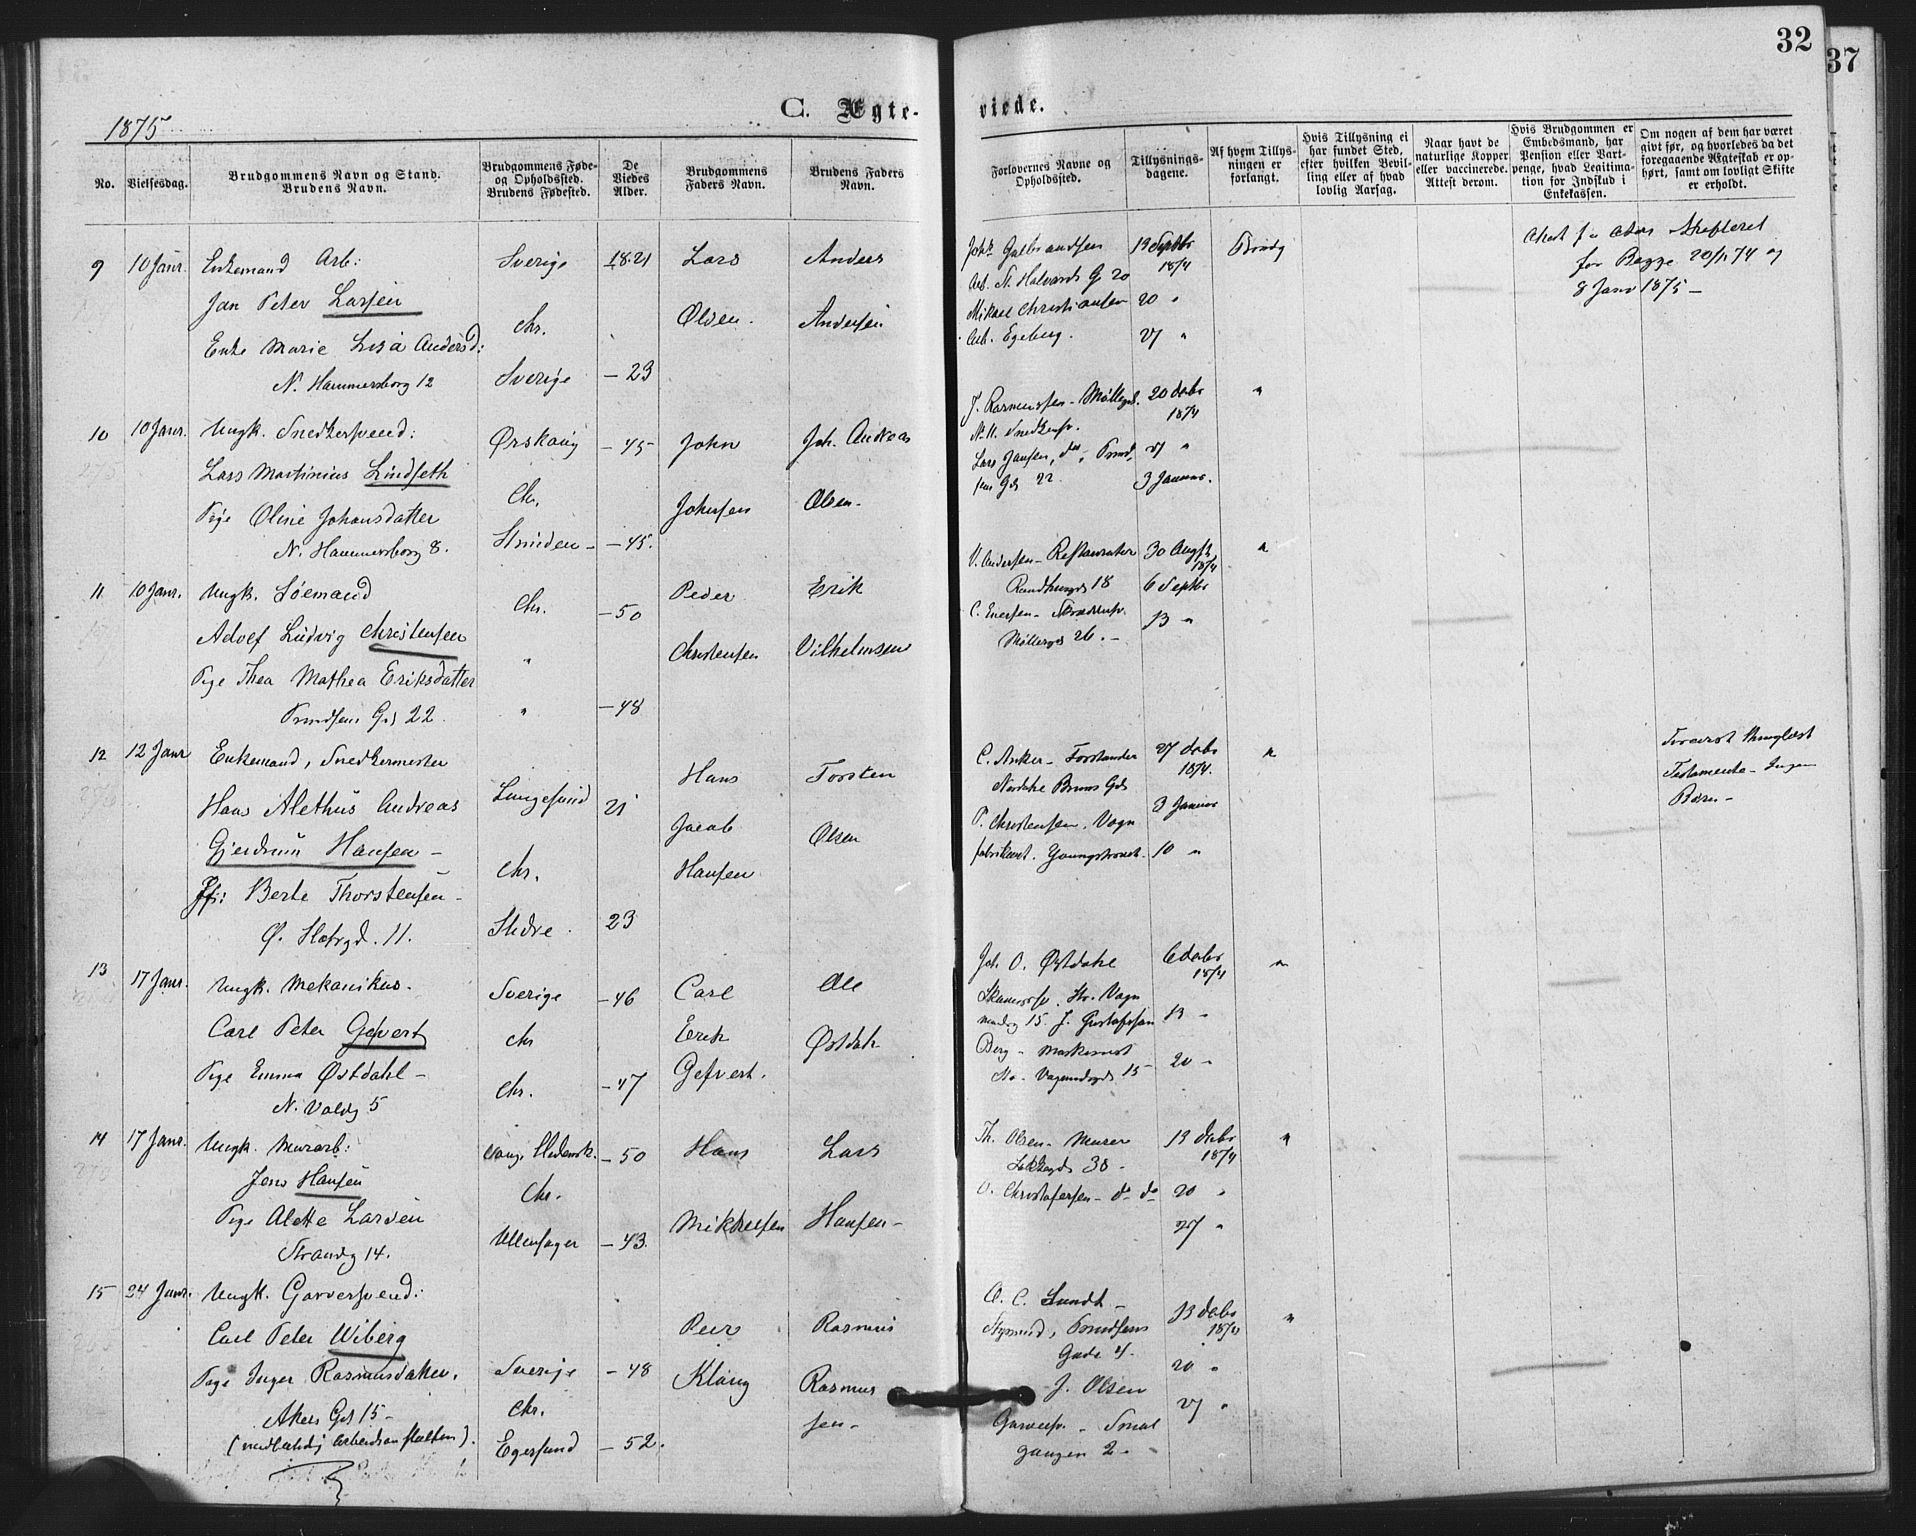 32
37
1875
C. Ægte-
viede.
No.
Vielsesdag.
Brudgommens Navn og Stand.
Brudens Navn.
Brudgommens Føde-
og Opholdssted.
Brudens Fødested.
De
Viedes
Alder.
Brudgommens
Faders Navn.
Brudens Faders
Navn.
Forlovernes Navne og
Opholdssted.
Tillysnings-
dagene.
Af hvem Tillys-
ningen er
forlangt.
Hvis Tillysning ei
har fundet Sted,
efter hvilken Bevil-
ling eller af hvad
lovlig Aarsag.
Naar havt de
naturlige Kopper
eller vaccinerede.
Attest derom.
Hvis Brudgommen er
Embedsmand, har
Pension eller Vart-
penge, hvad Legitima-
tion for Indskud i
Enkekassen.
Om nogen af dem har været
givt før, og hvorledes da det
foregaaende Ægteskab er op-
hørt, samt om lovligt Skifte
er erholdt.
9 10 Janr. Enkemand Arb: Sverige 1821 Lars Anders
Jan Peter Larsen Chr. Olsen. Andersen
Enke Marie Lisa Andersd: Sverige - 23
N. Hammersborg 12
Joh. Gulbrandsen 13 Septbr 1874 Brudg
Arb. St. Halvards G 20
Mikael Christiansen 20 "
Arb. Egeberg. 27 "
Skifteret
for Begge 20/11 74 og
8 Janr 1875 -
10 10 Janr. Ungk. Snedkersvend: Ørskoug - 45 John Joh. Andreas
Lars Martinius Lindseth Chr. Johnsen Olsen -
Pige Oline Johansdatter
N. Hammersborg 8. - 45.
J. Rasmussen - Møllergd. 20 decbr 1874 "
No 11. Snedkersv.
Lars Jansen, do, 27 "
22 3 Januar.
11 10 Janr. Ungk. Løsmand Chr. - 50 Peder Erik
Adolf Ludvig Christensen " Christensen Vilhelmsen
Pige Thea Mathea Eriksdatter " - 48
Trondhjems Gd 22
V. Andersen - Restauratør 30 Augst 1874 "
18 6 Septbr
13 "
Møllergd 26. -
12 12 Janr Enkemand, Snedkermester Langesund 21 Hans Torsten
Hans Alethus Andreas Jacob Olsen
Gjerdrum Hansen - Chr. Hansen
Berte Thorstensen - Slidre 23
Ø. Slotsgd. 11.
C. Anker - Forstander 27 decbr 1874. "
Nordahl Bruns Gd
P. Christensen, Vogn 3 Januar
fabrikant. Youngstorvet. 10 "
Testamente - Ingen
Børn -
13 17 Janr. Ungk. Mekanikus. Sverige - 46 Carl Ole
Carl Peter Gefvert Chr Erik Østdahl
Pige Emma Østdahl - Chr. - 47 Gefvert.
N. Voldg 5
Joh. O. Østdahl 6 decbr 1874 "
St. Vogn
mandsg 15. J. Gustafsson 13 -
Berg - Maskinist
St. Vognmdsgd 15 - 20 -
14 17 Janr. Ungk. Murarb: - 50 Hans Lars
Jens Hansen Chr. Mikkelsen Hansen -
Pige Alette Larsen Ullensager - 43.
Strandg 14.
Th. Olsen - Murer 13 decbr 1874 "
38 -
O. Christofersen - do do 20 "
27 "
15 24 Janr. Ungk. Garversvend: Peer Rasmus
Carl Peter Wiberg
Pige Inger Rasmusdatter. Sverige - 48 Klang Rasmus
Akers Gd 15 - Chr. sen -
(midlertidig Arbeidsanstalten). Egersund - 52.
O. C. Lundt - 13 decbr 1874 "
Gade 4. 20 "
J. Olsen 27 "
Garversv. - Smal
gangen 2 -